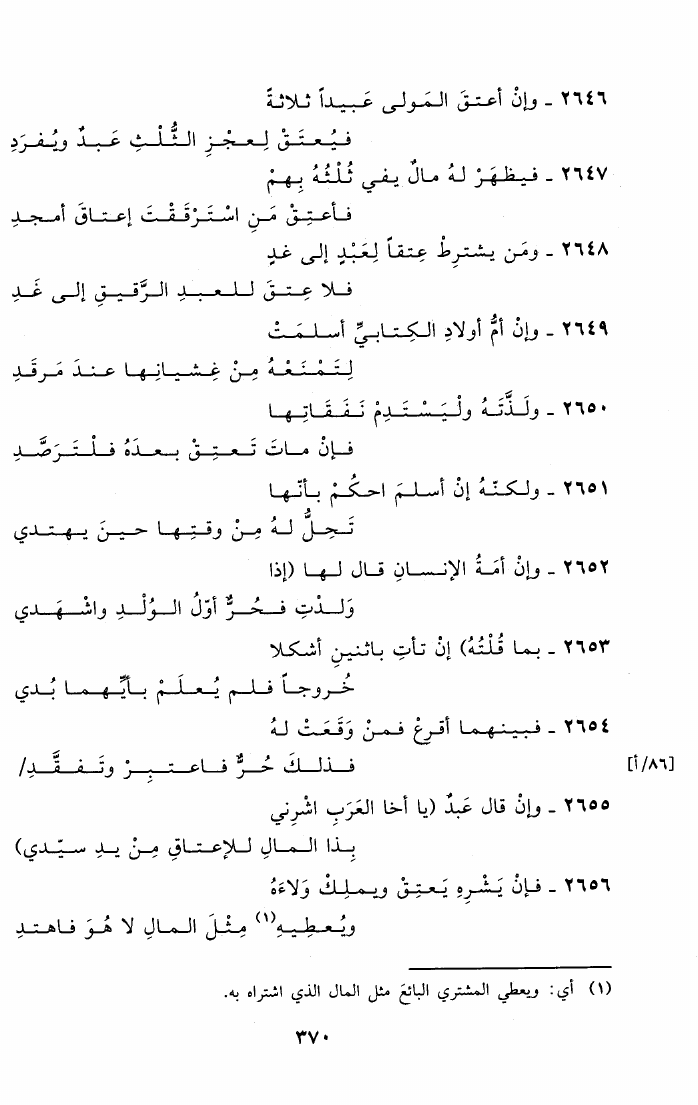 ٢٦٤٦ - وإنْ أعتقَ المَولى عَبيداً ثلاثةً
فيُعتَقْ لِعجْزِ الثُّلْثِ عَبدٌ ويُفرَدِ
٢٦٤٧ - فيظهَرْ لهُ مالٌ يفي ثُلْثُهُ بِهِمْ
فأعتِقْ مَنِ اسْتَرْقَقْتَ إعتاقَ أمجدِ
٢٦٤٨ - ومَن يشترِطْ عِتقاً لِعَبْدٍ إلى غدٍ
فلا عِتقَ للعبدِ الرَّقيقِ إلى غَدِ
٢٦٤٩ - وإنْ أمُّ أولادِ الكِتابيِّ أسلمَتْ
لِتَمْنَعْهُ مِنْ غِشيانِها عندَ مَرقَدِ
٢٦٥٠ - ولَذَّتَهُ ولْيَسْتَدِمْ نَفَقَاتِها
فإنْ ماتَ تَعتِقْ بعدَهُ فلْتَرَصَّدِ
٢٦٥١ - ولكنّهُ إنْ أسلمَ احكُمْ بأنّها
تَحِلُّ لهُ مِنْ وقتِها حينَ يهتدي
٢٦٥٢ - وإنْ أمَةُ الإنسانِ قال لها (إذا
وَلدْتِ فحُرٌّ أوّلُ الوُلْدِ واشْهَدي
٢٦٥٣ - بما قُلْتُهُ) إنْ تأتِ باثنينِ أشكلا
خُروجاً فلم يُعلَمْ بأيِّهِما بُدي
٢٦٥٤ - فبينهما أقرِعْ فمنْ وَقَعَتْ لهُ
فذلكَ حُرٌّ فاعتبِرْ وتَفقَّدِ/ [٨٦/أ]
٢٦٥٥ - وإنْ قال عَبدٌ (يا أخا العَرَبِ اشْرِني
بِذا المالِ للإعتاقِ مِنْ يدِ سيّدي)
٢٦٥٦ - فإنْ يَشْرِهِ يَعتِقْ ويملِكْ وَلاءَهُ
ويُعطِيهِ(١) مِثْلَ المالِ لا هُوَ فاهتدِ
(١) أي: ويعطي المشتري البائعَ مثل المال الذي اشتراه به.
٣٧٠